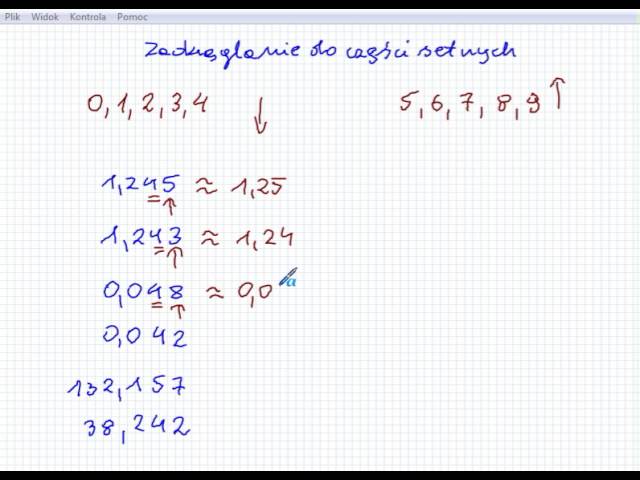 Plik Widok Kontrola Pomoc
Zaokrąglanie do części setnych
0,1,2,3,4 ↓ 5,6,7,8,9 ↑
1,245 ≈ 1,25
1,243 ≈ 1,24
0,048 ≈ 0,0
0,042
132,157
38,242